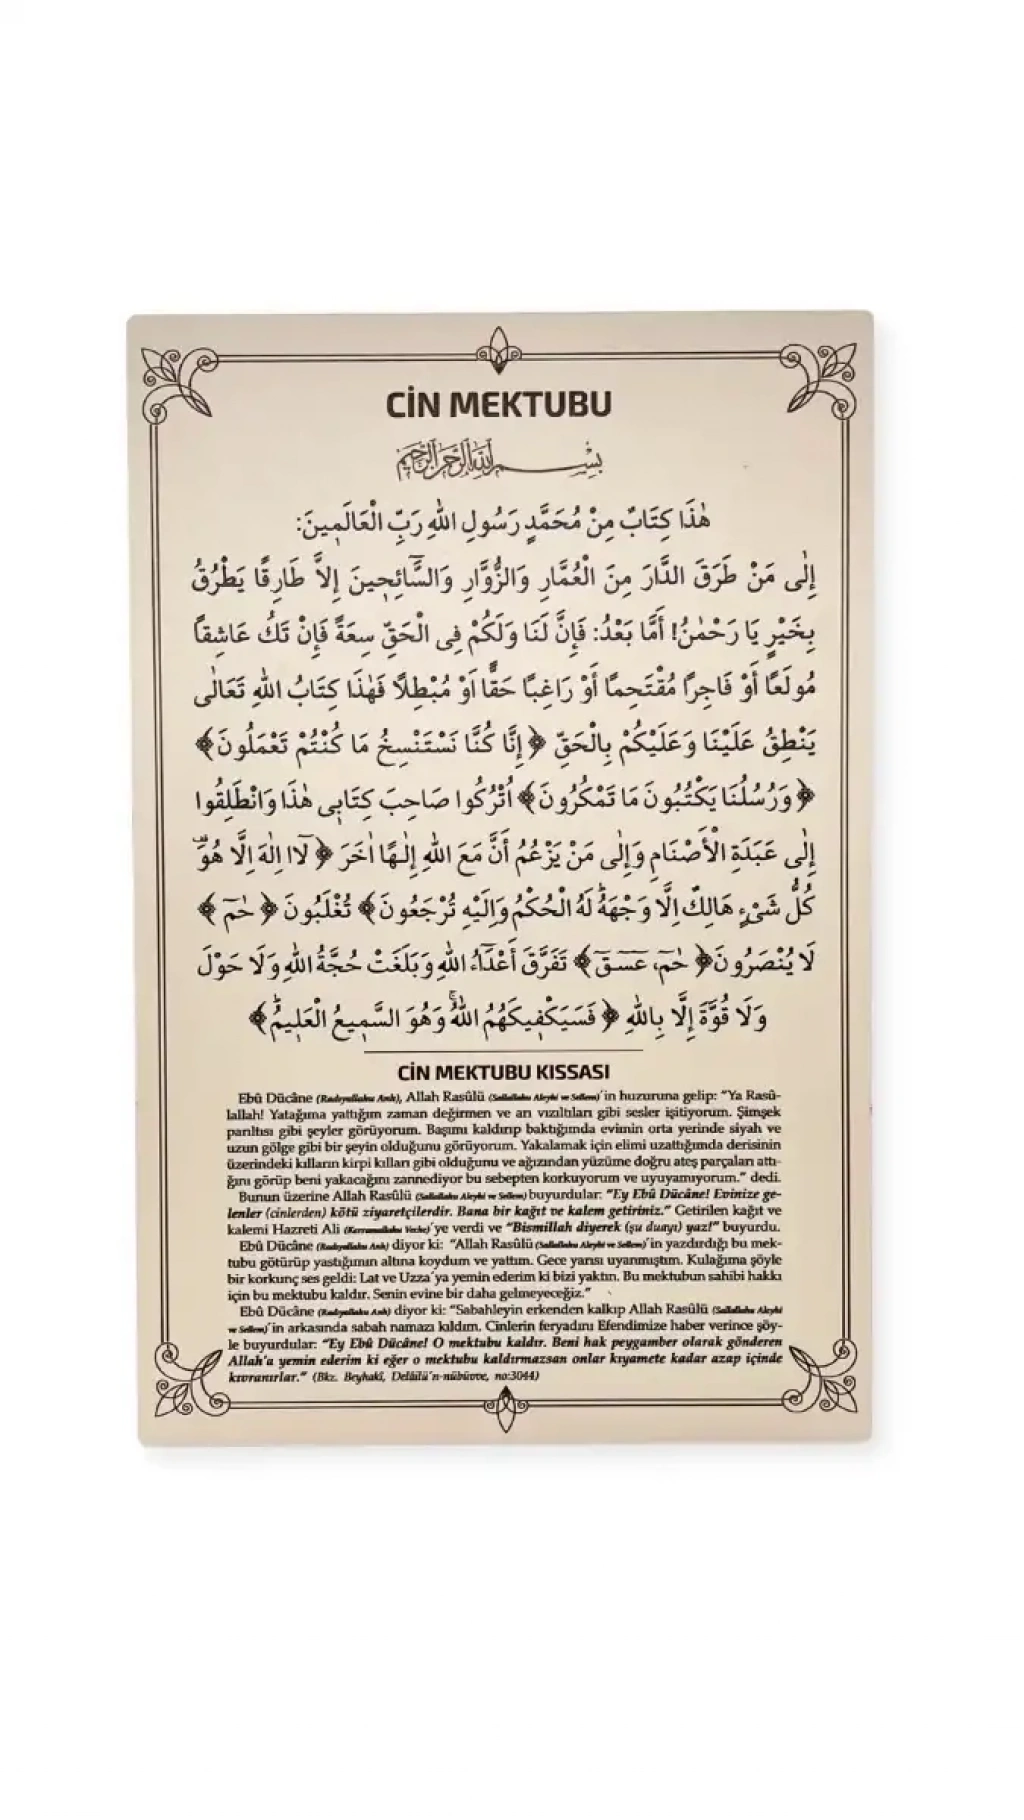 CİN MEKTUBU
بِسْمِ اللهِ الرَّحْمٰنِ الرَّحِيمِ
هٰذَا كِتَابٌ مِنْ مُحَمَّدٍ رَسُولِ اللهِ رَبِّ الْعَالَمِينَ:
إِلٰى مَنْ طَرَقَ الدَّارَ مِنَ الْعُمَّارِ وَالزُّوَّارِ وَالسَّائِحِينَ إِلاَّ طَارِقًا يَطْرُقُ
بِخَيْرٍ يَا رَحْمٰنُ! أَمَّا بَعْدُ: فَإِنَّ لَنَا وَلَكُمْ فِى الْحَقِّ سِعَةً فَإِنْ تَكُ عَاشِقاً
مُولَعًا أَوْ فَاجِرًا مُقْتَحِمًا أَوْ رَاغِبًا حَقًّا اَوْ مُبْطِلاً فَهٰذَا كِتَابُ اللهِ تَعَالٰى
يَنْطِقُ عَلَيْنَا وَعَلَيْكُمْ بِالْحَقِّ ﴿إِنَّا كُنَّا نَسْتَنْسِخُ مَا كُنْتُمْ تَعْمَلُونَ﴾
﴿وَرُسُلُنَا يَكْتُبُونَ مَا تَمْكُرُونَ﴾ اُتْرُكُوا صَاحِبَ كِتَابِى هٰذَا وَانْطَلِقُوا
إِلٰى عَبَدَةِ الْأَصْنَامِ وَإِلٰى مَنْ يَزْعُمُ أَنَّ مَعَ اللهِ إِلٰهًا اٰخَرَ ﴿لَآ اِلٰهَ اِلَّا هُوَۜ
كُلُّ شَىْءٍ هَالِكٌ اِلَّا وَجْهَهُۜ لَهُ الْحُكْمُ وَاِلَيْهِ تُرْجَعُونَ﴾ تُغْلَبُونَ ﴿حٰمٓ﴾
لَا يُنْصَرُونَ ﴿حٰمٓ، عٓسٓقٓ﴾ تَفَرَّقَ أَعْدَٓاءُ اللهِ وَبَلَغَتْ حُجَّةُ اللهِ وَلَا حَوْلَ
وَلَا قُوَّةَ إِلَّا بِاللهِ ﴿فَسَيَكْفِيكَهُمُ اللهُۚ وَهُوَ السَّمِيعُ الْعَلِيمُۜ﴾
CİN MEKTUBU KISSASI
Ebû Dücâne (Radıyallahu Anh), Allah Rasûlü (Sallallahu Aleyhi ve Sellem)'in huzuruna gelip: "Ya Rasû-
lallah! Yatağıma yattığım zaman değirmen ve arı vızıltıları gibi sesler işitiyorum. Şimşek
parıltısı gibi şeyler görüyorum. Başımı kaldırıp baktığımda evimin orta yerinde siyah ve
uzun gölge gibi bir şeyin olduğunu görüyorum. Yakalamak için elimi uzattığımda derisinin
üzerindeki kılların kirpi kılları gibi olduğunu ve ağızından yüzüme doğru ateş parçaları attı-
ğını görüp beni yakacağını zannediyor bu sebepten korkuyorum ve uyuyamıyorum." dedi.
Bunun üzerine Allah Rasûlü (Sallallahu Aleyhi ve Sellem) buyurdular: "Ey Ebû Dücâne! Evinize ge-
lenler (cinlerden) kötü ziyaretçilerdir. Bana bir kağıt ve kalem getiriniz." Getirilen kağıt ve
kalemi Hazreti Ali (Kerramallahu Veche)'ye verdi ve "Bismillah diyerek (şu duayı) yaz!" buyurdu.
Ebû Dücâne (Radıyallahu Anh) diyor ki: "Allah Rasûlü (Sallallahu Aleyhi ve Sellem)'in yazdırdığı bu mek-
tubu götürüp yastığımın altına koydum ve yattım. Gece yarısı uyanmıştım. Kulağıma şöyle
bir korkunç ses geldi: Lat ve Uzza'ya yemin ederim ki bizi yaktın. Bu mektubun sahibi hakkı
için bu mektubu kaldır. Senin evine bir daha gelmeyeceğiz."
Ebû Dücâne (Radıyallahu Anh) diyor ki: "Sabahleyin erkenden kalkıp Allah Rasûlü (Sallallahu Aleyhi
ve Sellem)'in arkasında sabah namazı kıldım. Cinlerin feryadını Efendimize haber verince şöy-
le buyurdular: "Ey Ebû Dücâne! O mektubu kaldır. Beni hak peygamber olarak gönderen
Allah'a yemin ederim ki eğer o mektubu kaldırmazsan onlar kıyamete kadar azap içinde
kıvranırlar." (Bkz. Beyhakî, Delâilü'n-nübüvve, no:3044)